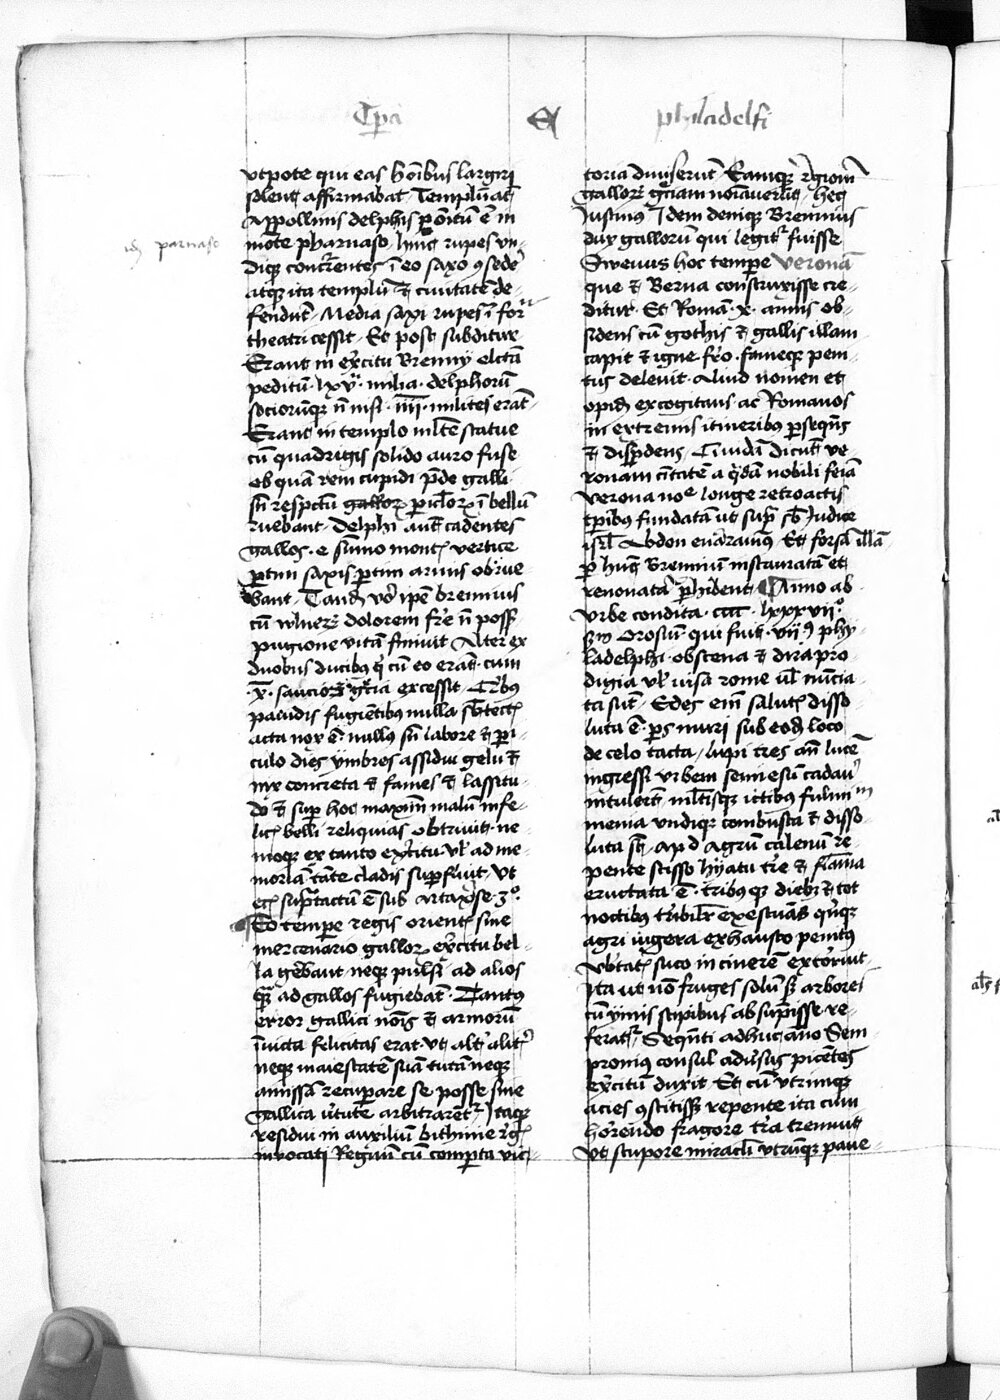 Tpa Ex philadelfi
vtpote qui eas hoibus largiri
solent affirmabat Templu at
Appollinis delphis positu e in
monte pharnaso hinc rupes vn-
diqz concurrentes i eo saxo gsede
atqz ita templu et ciuitate de-
fendut Media saxi rupes i for
theatri cessit Et post subditur
Erant in exercitu Brenny elcta
peditu lxv milia delphoru
socioruqz no nisi iiii milites erat
Erant in templo mlte statue
cu quadrigis solido auro fuse
ob qua rem cupidi pde galli
sn respctu gallorz piclorz i bellu
ruebant Delphi aut cadentes
gallos e sumo montis vertice
ptim saxis ptim armis obrue-
bant Tand vo ipe brennius
cu vulnerz dolorem fre no posset
pugione vita finiuit Alter ex
duobus ducibz q cu eo erat cum
x saucior gcia excessit Cribus
paludis fugietibus nulla sb tecti
acta nox e nullus sn labore et pi-
culo dies ymbres assidui gelu et
nix concreta et fames et lassitu-
do et sup hoc maximu malu infe-
lici belli reliquias obtriuit ne-
moqz ex tanto excitu vl ad me-
moria tante cladis supfuit Vt
eti supra tactu e sub Artaxerse 3o
Eo tempe regis orient sine
mercenario gallor exercitu bel-
la gerebant neqz pulsi ad alios
qz ad gallos fugiebat Tantus
error gallici nois et armoru
inuicta felicitas erat vt alit
neqz maiestate sua tuta neqz
amissa recupare se posse sine
gallica virtute arbitraretur Itaqz
residui in auxiliu bithinie regis
inuocati Regnu cu comperta vic-
id parnaso
toria diuiserut Eamqz regione
gallorz greciam noiauerut hec
Justinus Idem deniqz Brennius
dux galloru qui legit fuisse
Sweuus hoc tempe verona
que et Berna construxisse cre-
ditur Et Roma x annis ob-
sidens cu gothis et gallis illam
capit et igne fro fameqz peni-
tus deleuit Aliud nomen et
opid excogitans ac Romanos
in extremis itineribus psequens
et dispdens Quida dicut ve-
rona ciuitate a qda nobili feia
verona noe longe retroactis
tpibus fundata vt sup sb Judice
isrl Abdon enarauimus Et forsa illa
p hunc Brenniu instaurata et
renouata phibent Anno ab
vrbe condita cccc lxxxvii
Orosiu qui fuit vii phy-
ladelphi obscena et dira pro-
digia vl visa rome vl nuncia-
ta sut Edes em salutis disso-
luta e ps muri sub eod loco
de celo tacta lupi tres an luce
ingressi vrbem semiesu cadauer
intulert mltisqz ictibus fulminu
menia vndiqz combusta et disso-
luta sb Apud Agru calenu re-
pente scisso hyatu tre et flama
eructata e tribus qz diebz et tot
noctibus tribilr exestuas quinqz
agri iugera exhausto penitus
vbtatis suco in cinere extorruit
ita vt no fruges solu sz arbores
cu ymis stipibus absupsisse re-
ferat Sequenti adhuc ano Sem-
pronius consul adusus picetes
excitu duxit Et cu vtrimqz
acies gstitisset repente ita cum
horrendo fragore tra tremuit
vt stupore miracli vtruqz paue-